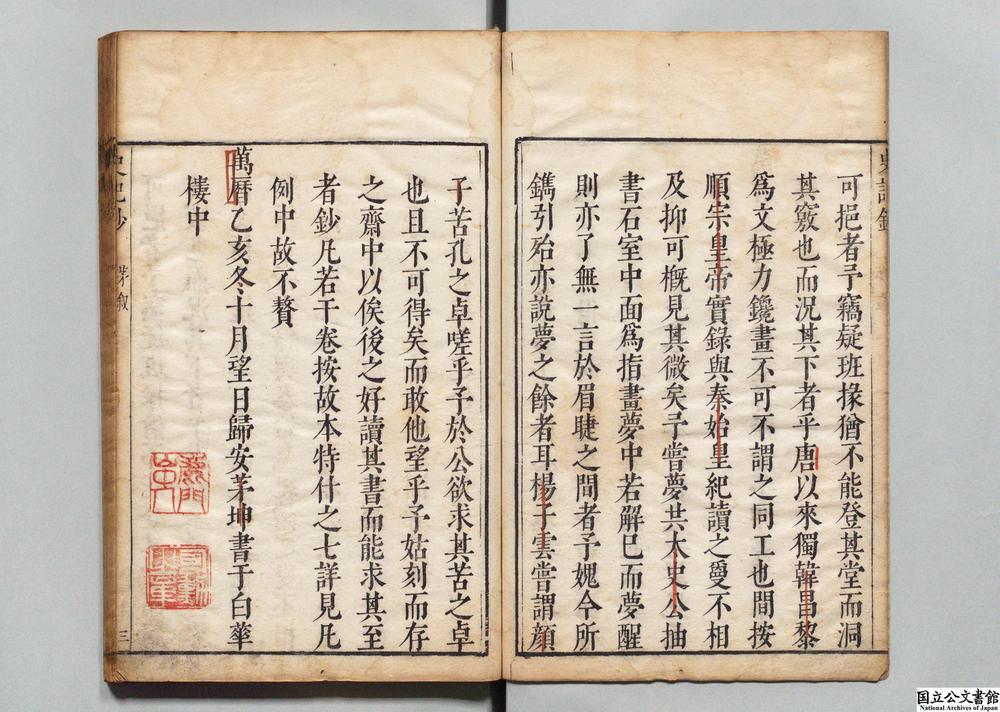 可挹者予竊疑班掾猶不能登其堂而洞
其竅也而況其下者乎唐以來獨韓昌黎
爲文極力鑱畫不可不謂之同工也間按
順宗皇帝實錄與秦始皇紀讀之夐不相
及抑可槪見其微矣予嘗夢共太史公抽
書石室中面爲指畫夢中若解巳而夢醒
則亦了無一言於眉睫之間者予媿今所
鐫引殆亦說夢之餘者耳楊子雲嘗謂顏
子苦孔之卓嗟乎予於公欲求其苦之卓
也且不可得矣而敢他望乎予姑刻而存
之齋中以俟後之好讀其書而能求其至
者鈔凡若干卷按故本特什之七詳見凡
例中故不贅
萬曆乙亥冬十月望日歸安茅坤書于白華
樓中
史記鈔
茅叙
三
国立公文書館
National Archives of Japan